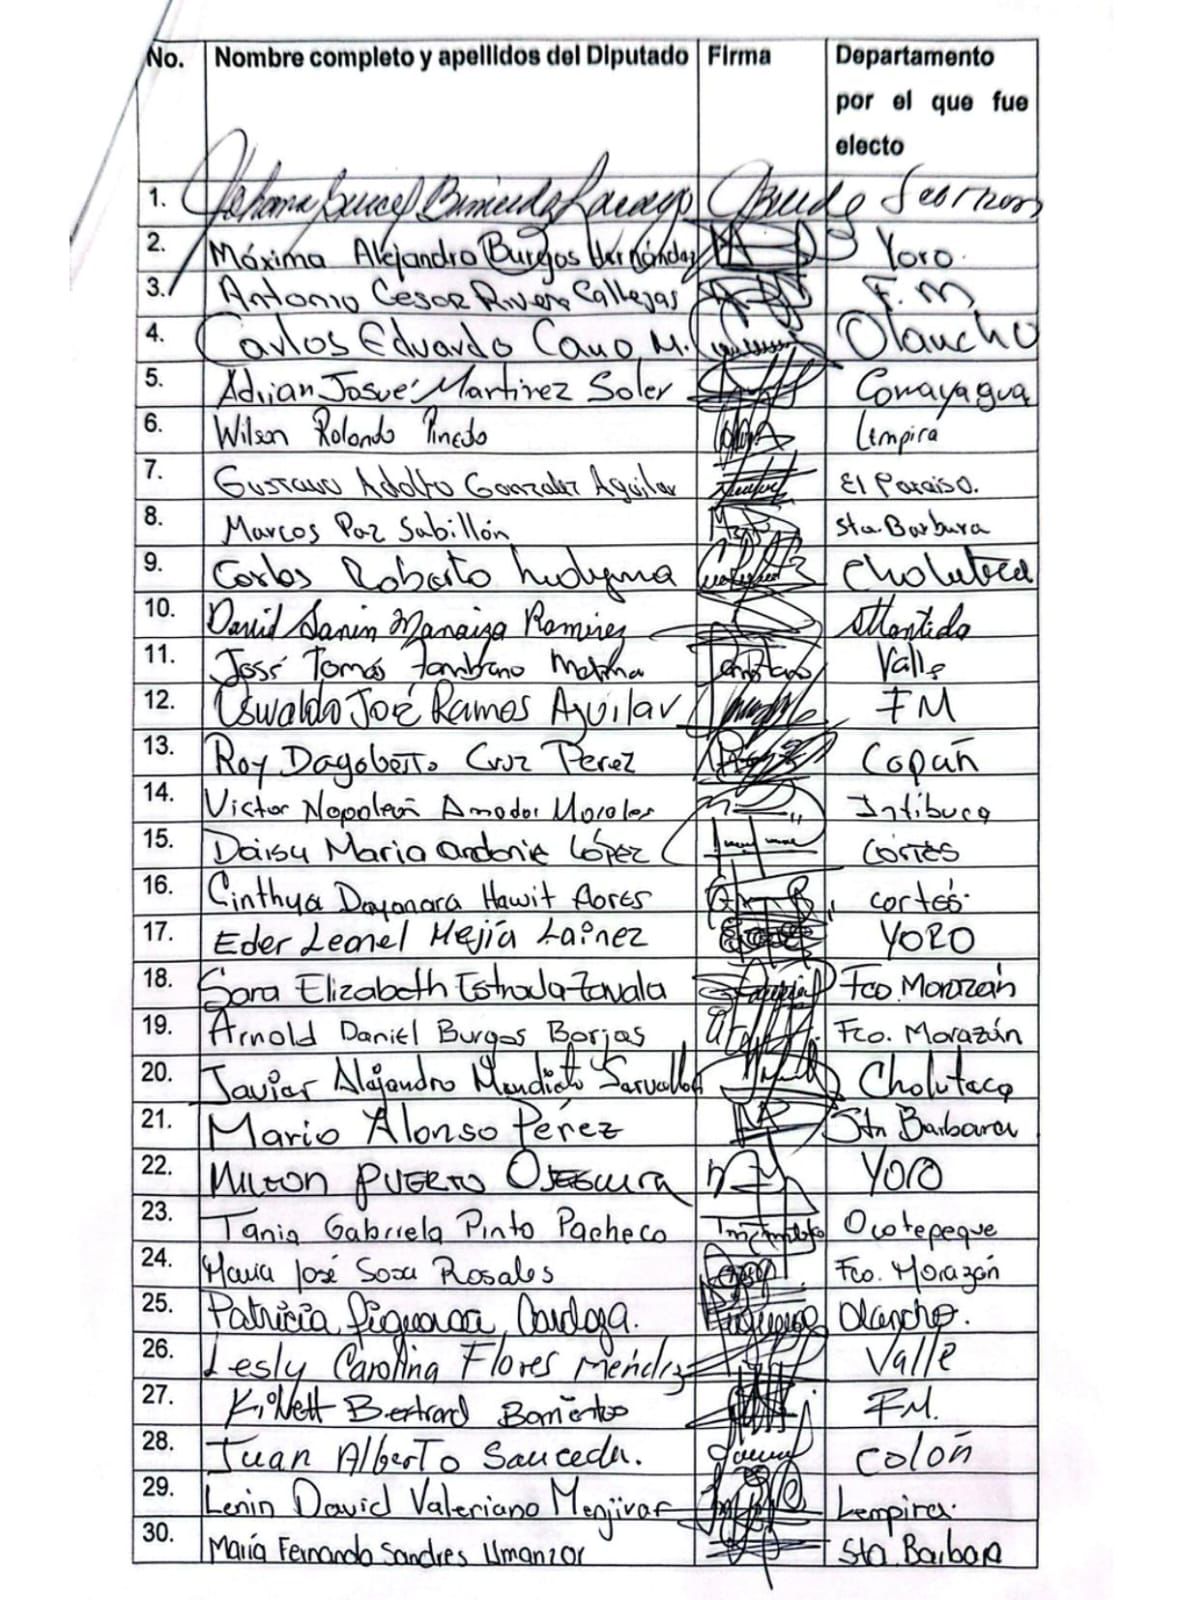 No. Nombre completo y apellidos del Diputado Firma Departamento
por el que fue
electo
1. Bermudez
2. Máxima Alejandro Burgos Hernández Yoro.
3. Antonio Cesar Rivera Callejas F.M
4. Carlos Eduardo Cano M. Olancho
5. Adrian Josué Martinez Soler Comayagua
6. Wilson Rolando Pineda Lempira
7. Gustavo Adolfo Gonzalez Aguilar El Paraiso.
8. Marcos Paz Sabillón Sta. Barbara
9. Carlos Roberto Ledezma Choluteca
10. David Manaiza Ramirez Atlantida
11. José Tomás Zambrano Molina Valle
12. Oswaldo José Ramos Aguilar FM
13. Roy Dagoberto Cruz Perez Copán
14. Victor Napoleón Amador Morales Intibuca
15. Daisy Maria andonie López Cortés
16. Cinthya Dayanara Hawit Flores cortés.
17. Eder Leonel Mejía Laínez YORO
18. Sara Elizabeth Estrada Zavala Fco. Morazán
19. Arnold Daniel Burgos Borjas Fco. Morazán
20. Javier Alejandro Choluteca
21. Mario Alonso Pérez Sta Barbara
22. MILTON PUERTO OSEGUERA YORO
23. Tania Gabriela Pinto Pacheco Ocotepeque
24. Maria José Sosa Rosales Fco. Morazán
25. Patricia Figueroa Cardoza. Olancho.
26. Lesly Carolina Flores Mendez Valle
27. Kilvett Bertrand Barrientos F.M.
28. Juan Alberto Sauceda. Colón
29. Lenin David Valeriano Menjivar Lempira.
30. María Fernanda Sandres Umanzor Sta Barbara